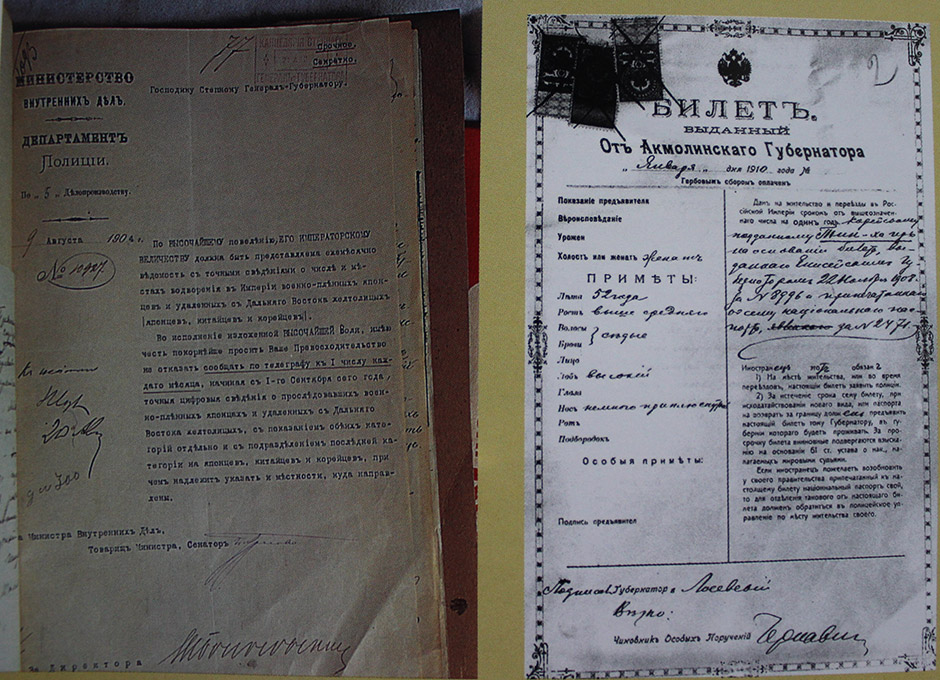 77
Срочное.
Секратно.
КАНЦЕЛЯРІЯ СТЕПНОГО
ГЕНЕРАЛЪ-ГУБЕРНАТОРА
Господину Степному Генералъ-Губернатору.
МИНИСТЕРСТВО
ВНУТРЕННИХЪ ДѢЛЪ.
ДЕПАРТАМЕНТЪ
Полиціи.
По „5„ Дѣлопроизводству.
9 Августа 1904 г.
№ 10927
По ВЫСОЧАЙШЕМУ повелѣнію, ЕГО ИМПЕРАТОРСКОМУ
ВЕЛИЧЕСТВУ должна быть представляема ежемѣсячно
вѣдомость съ точными свѣдѣніями о числѣ и мѣ-
стахъ водворенія въ Имперіи военно-плѣнныхъ япон-
цевъ и удаленныхъ съ Дальняго Востока желтолицыхъ
/японцевъ, китайцевъ и корейцевъ/.
Во исполненіе изложенной ВЫСОЧАЙШЕЙ Воли, имѣю
честь покорнѣйше просить Ваше Превосходительство
не отказать сообщать по телеграфу къ I числу каж-
даго мѣсяца, начиная съ I-го Сентября сего года,
точныя цифровыя свѣдѣнія о прослѣдовавшихъ воен-
но-плѣнныхъ японцахъ и удаленныхъ съ Дальняго
Востока желтолицыхъ, съ показаніемъ обѣихъ кате-
горій отдѣльно и съ подраздѣленіемъ послѣдней ка-
тегоріи на японцевъ, китайцевъ и корейцевъ, при
чемъ надлежитъ указать и мѣстности, куда направ-
лены.
а Министра Внутреннихъ Дѣлъ,
Товарищъ Министра, Сенаторъ
За Директора
2
БИЛЕТЪ.
ВЫДАННЫЙ
Отъ Акмолинскаго Губернатора
„ Января „ дня 1910 года №
Гербовымъ сборомъ оплаченъ
Показаніе предъявителя
Вѣроисповѣданіе
Урожен
Холостъ или женатъ женатъ
ПРИМѢТЫ:
Лѣта 52 года
Ростъ выше средняго
Волосы
Брови } сѣдые
Лицо
Лобъ высокій
Глаза
Носъ немного приплюснутъ
Ротъ
Подбородокъ
Особыя примѣты:
Подпись предъявителя
Данъ на жительство и переѣзды въ Рос-
сійской Имперіи срокомъ отъ вышеозначен-
наго числа на одинъ годъ Корейскому
подданному
на основаніи билета, вы-
даннаго Енисейскимъ Гу-
бернаторомъ 22 Ноября 1908 г.
за № 8996 и припечатаннаго
къ сему національнаго пас-
порта, за № 2471.
Иностран обязан
1) На мѣстѣ жительства, или во время
переѣздовъ, настоящій билетъ заявить полиціи.
2) За истеченіе срока сему билету, при
исходатайствованіи новаго вида, или паспорта
на возвратъ за границу долженъ предъявить
настоящій билетъ тому Губернатору, въ гу-
берніи котораго будетъ проживать. За про-
срочку билета виновные подвергаются взыска-
нію на основаніи 61 ст. устава о нак., на-
лагаемыхъ мировыми судьями.
Если иностранецъ пожелаетъ возобновить
у своего правительства припечатанный къ на-
стоящему билету національный паспортъ свой,
то для отдѣленія таковаго отъ настоящаго би-
лета долженъ обратиться въ полицейское уп-
равленіе по мѣсту жительства своего.
Подписалъ Губернаторъ Лосевскій
Вѣрно:
Чиновникъ Особыхъ Порученій Чернавин